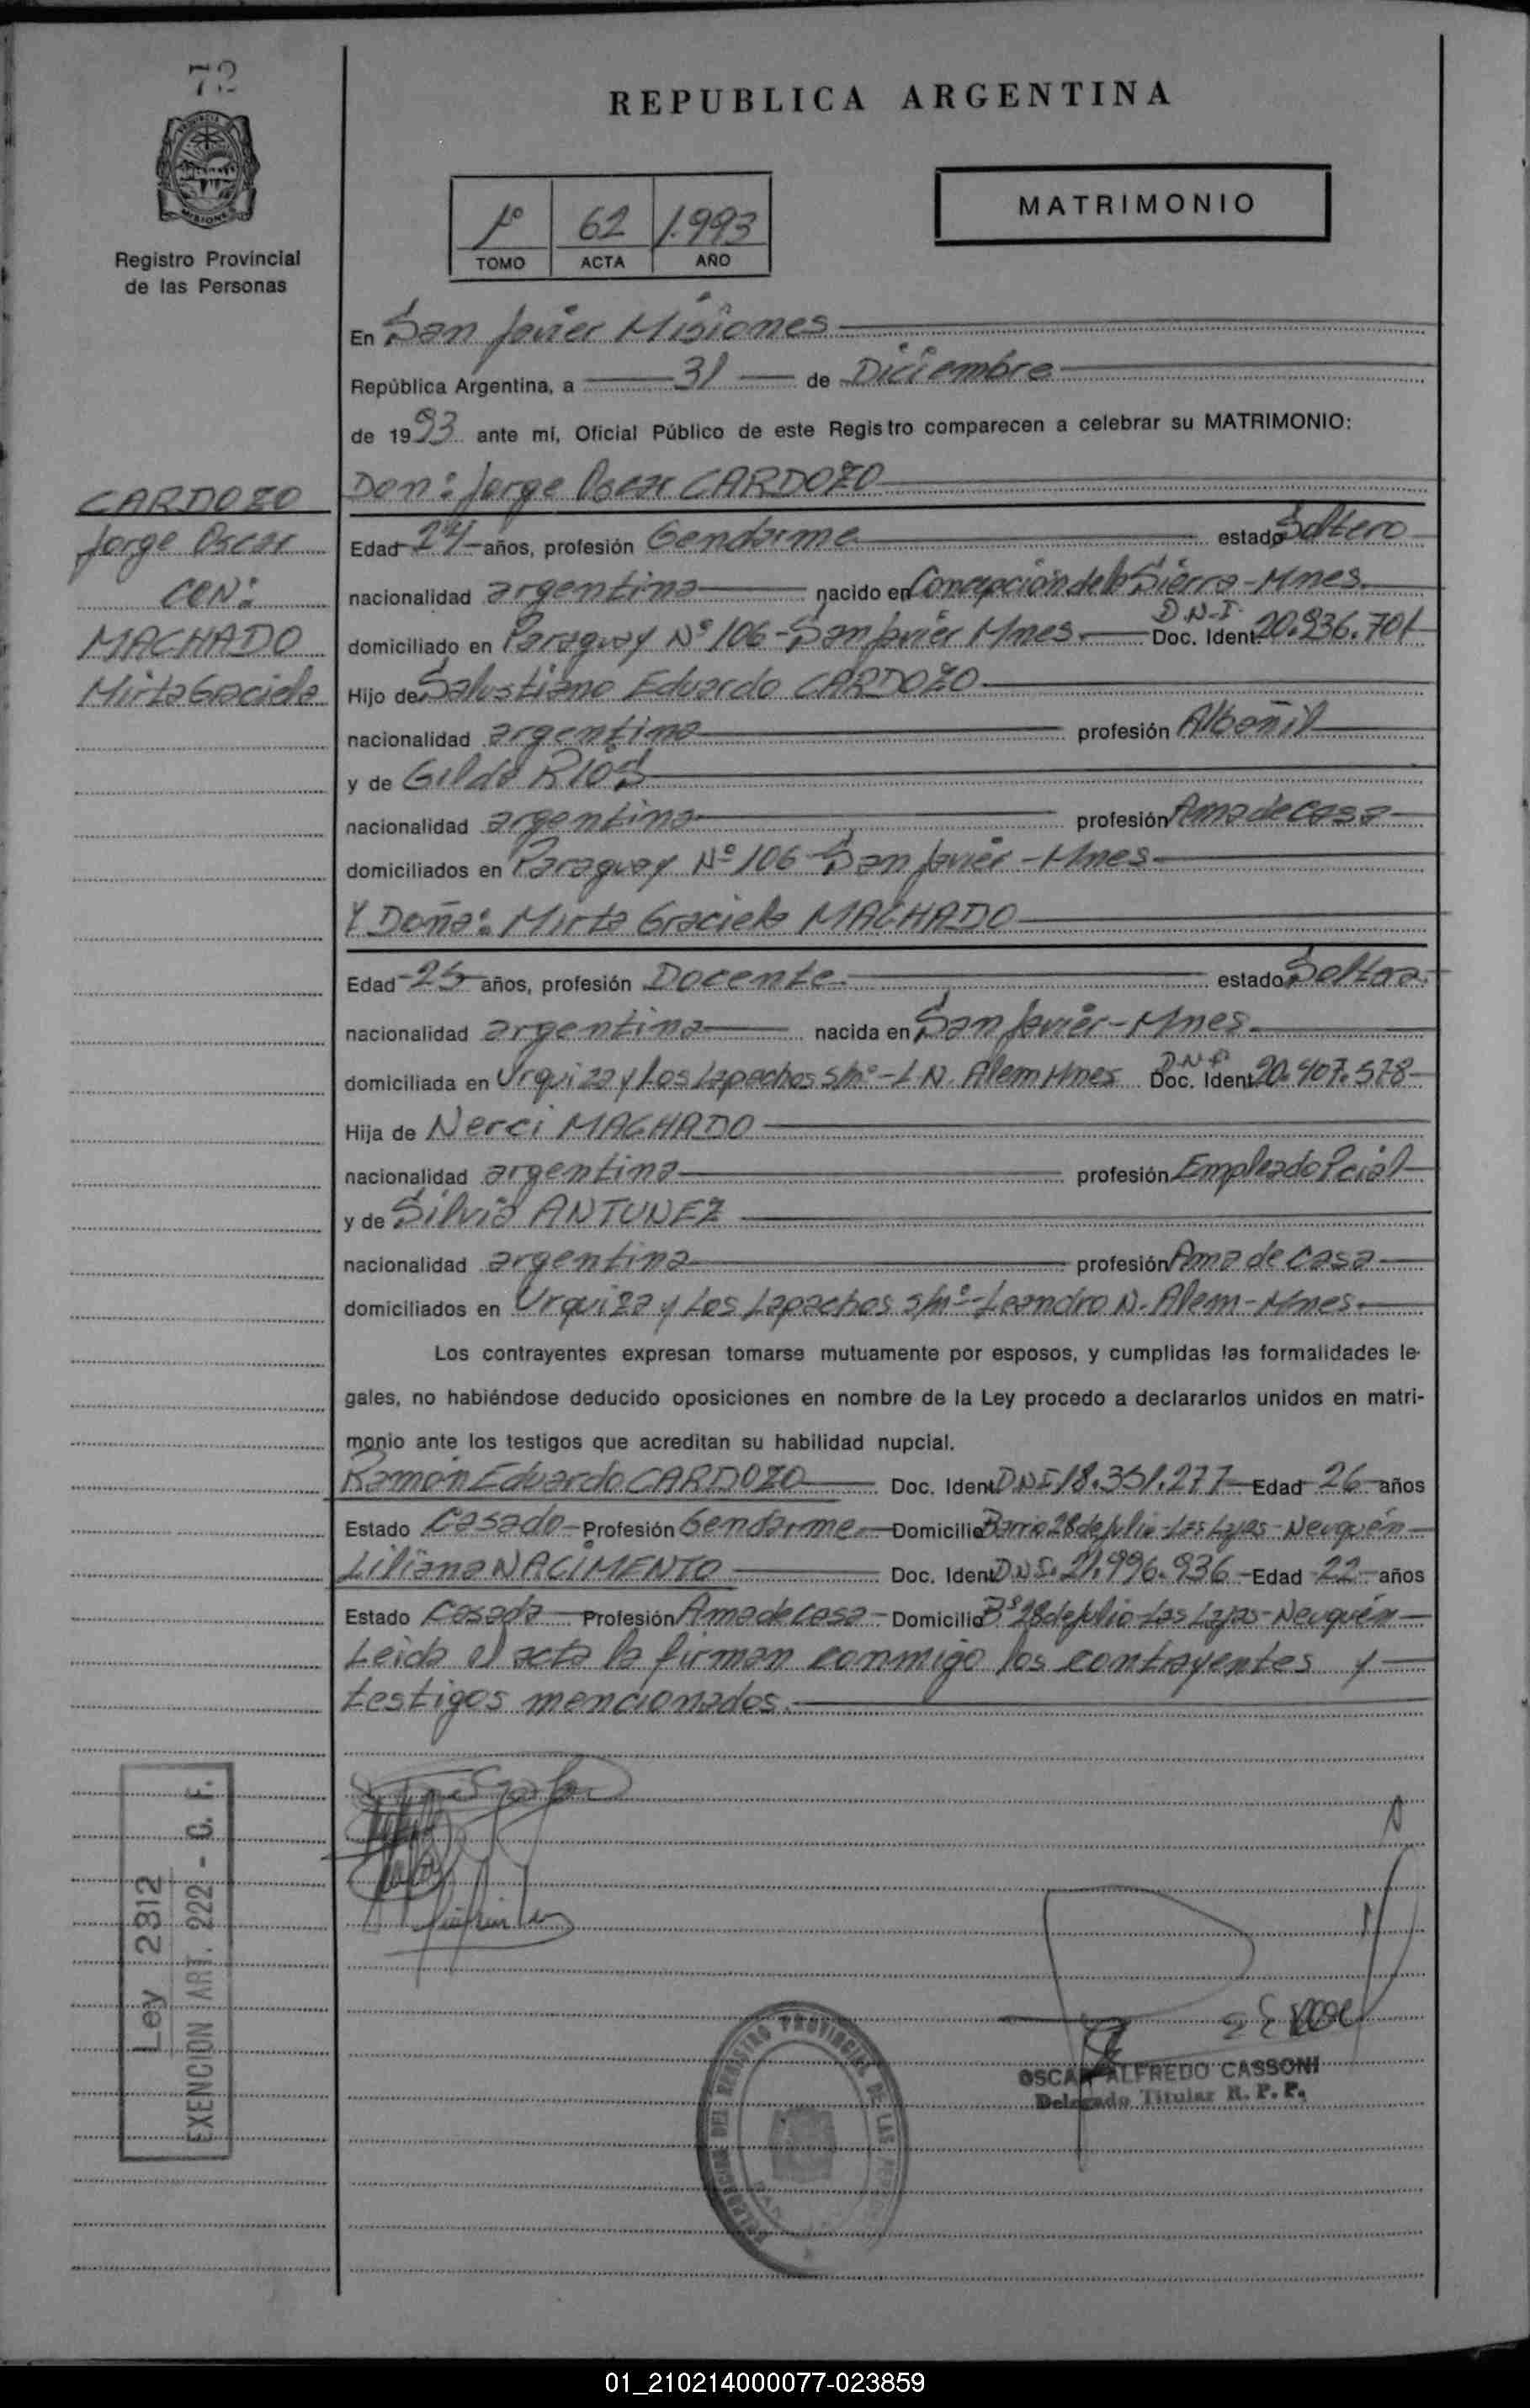 72
REPUBLICA ARGENTINA
MATRIMONIO
1º 62 1.993
TOMO ACTA AÑO
Registro Provincial
de las Personas
En San Javier Misiones
República Argentina, a 31 de Diciembre
de 1993 ante mí, Oficial Público de este Registro comparecen a celebrar su MATRIMONIO:
CARDOZO
Jorge Oscar
CON:
MACHADO
Mirta Graciela
Don: Jorge Oscar CARDOZO
Edad 24 años, profesión Gendarme estado Soltero
nacionalidad argentina nacido en Concepción de la Sierra - Mnes.
domiciliado en Paraguay Nº 106 - San Javier Mnes. D.N.I. Doc. Ident. 20.936.701
Hijo de Salustiano Eduardo CARDOZO
nacionalidad argentina profesión Albañil
y de Gilda RIOS
nacionalidad argentina profesión Ama de casa
domiciliados en Paraguay Nº 106 San Javier - Mnes.
Y Doña: Mirta Graciela MACHADO
Edad 25 años, profesión Docente estado Soltera
nacionalidad argentina nacida en San Javier - Mnes.
domiciliada en Urquiza y Los Lapachos s/nº - L N. Alem Mnes D.N.I. Doc. Ident. 20.407.578
Hija de Nerci MACHADO
nacionalidad argentina profesión Empleado Pcial
y de Silvia ANTUNEZ
nacionalidad argentina profesión Ama de casa
domiciliados en Urquiza y Los Lapachos s/nº - Leandro N. Alem - Mnes.
Los contrayentes expresan tomarse mutuamente por esposos, y cumplidas las formalidades le-
gales, no habiéndose deducido oposiciones en nombre de la Ley procedo a declararlos unidos en matri-
monio ante los testigos que acreditan su habilidad nupcial.
Ramón Eduardo CARDOZO Doc. Ident. DNI 18.351.277 Edad 26 años
Estado Casado Profesión Gendarme Domicilio Barrio 28 de Julio - Las Lajas - Neuquén
Liliana NACIMENTO Doc. Ident. DNI. 21.996.936 Edad 22 años
Estado Casada Profesión Ama de casa Domicilio Bº 28 de Julio - Las Lajas - Neuquén
Leida el acta la firman conmigo los contrayentes y
testigos mencionados.
Ley 2812
EXENCION ART. 222 - C. F.
OSCAR ALFREDO CASSONI
Delegado Titular R. P. P.
01_210214000077-023859